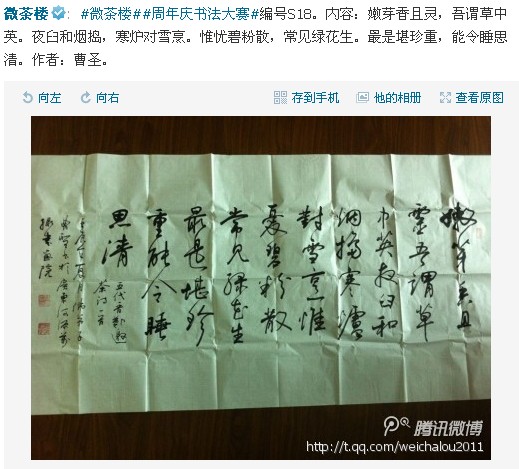 微茶楼: #微茶楼##周年庆书法大赛#编号S18。内容：嫩芽香且灵，吾谓草中
英。夜臼和烟捣，寒炉对雪烹。惟忧碧粉散，常见绿花生。最是堪珍重，能令睡思
清。作者：曹圣。
向左 向右 存到手机 他的相册 查看原图
嫩芽香且
靈吾謂草
中英夜臼和
烟搗寒爐
對雪烹惟
憂碧粉散
常見綠花生
最是堪珍
重能令睡
思清
五代
茶诗一首
書画院
腾讯微博
http://t.qq.com/weichalou2011